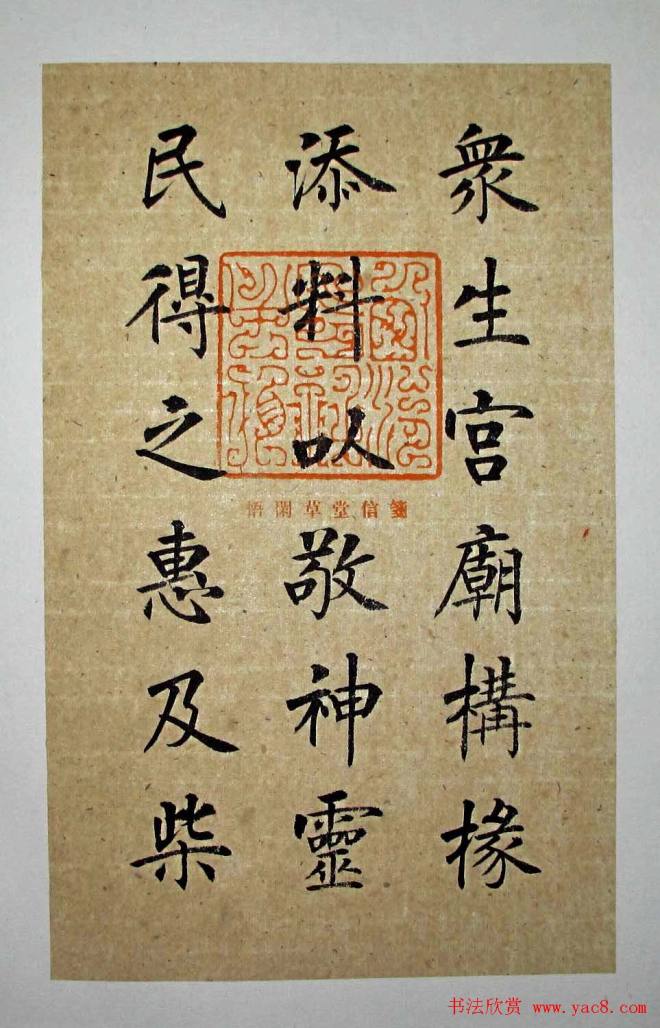 衆生宮廟構椽
添料以敬神靈
民得之惠及柴
悟閑草堂信箋
书法欣赏 www.yac8.com